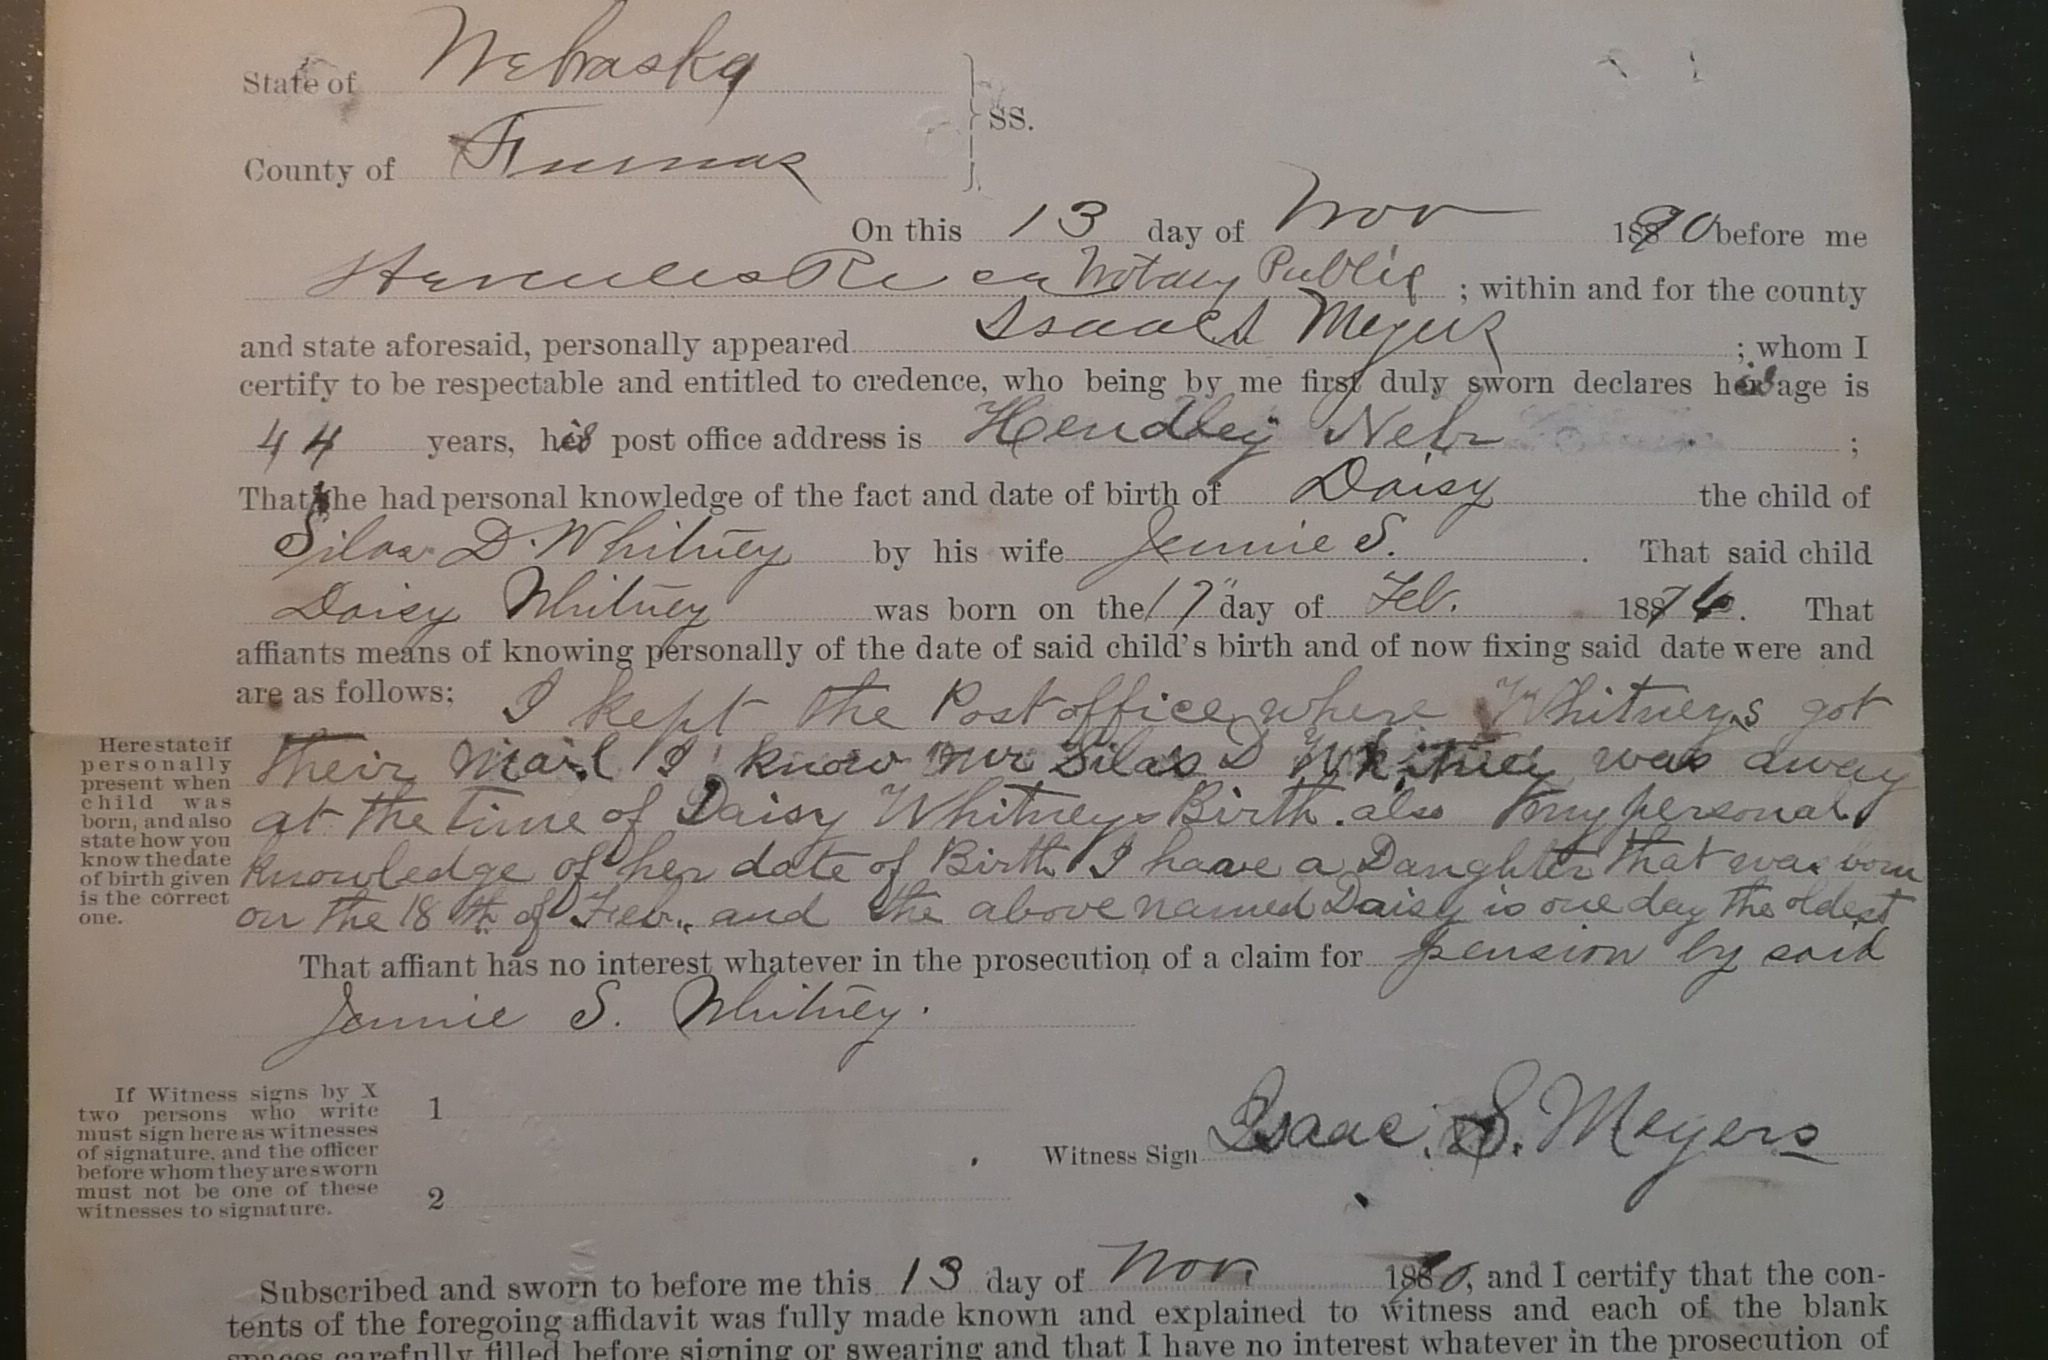 State of Nebraska
County of Furnas
} SS.
On this 13 day of Nov 1890 before me
Hercules Notary Public ; within and for the county
and state aforesaid, personally appeared Isaac S Meyers ; whom I
certify to be respectable and entitled to credence, who being by me first duly sworn declares his age is
44 years, his post office address is Hendley Nebr ;
That he had personal knowledge of the fact and date of birth of Daisy the child of
Silas D. Whitney by his wife Jennie S. . That said child
Daisy Whitney was born on the 17" day of Feb. . That
affiants means of knowing personally of the date of said child's birth and of now fixing said date were and
are as follows; I kept the Post office where Whitneys got
their Mail I know Mr Silas D Whitney was away
at the time of Daisy Whitneys Birth. also my personal
knowledge of her date of Birth I have a Daughter that was born
on the 18th of Feb., and the above named Daisy is one day the oldest
Here state if personally present when child was born, and also state how you know the date of birth given is the correct one.
That affiant has no interest whatever in the prosecution of a claim for pension by said
Jennie S. Whitney.
If Witness signs by X
two persons who write
must sign here as witnesses
of signature, and the officer
before whom they are sworn
must not be one of these
witnesses to signature.
1
2
Witness Sign Isaac. S. Meyers
Subscribed and sworn to before me this 13 day of Nov. 1890, and I certify that the con-
tents of the foregoing affidavit was fully made known and explained to witness and each of the blank
spaces carefully filled before signing or swearing and that I have no interest whatever in the prosecution of